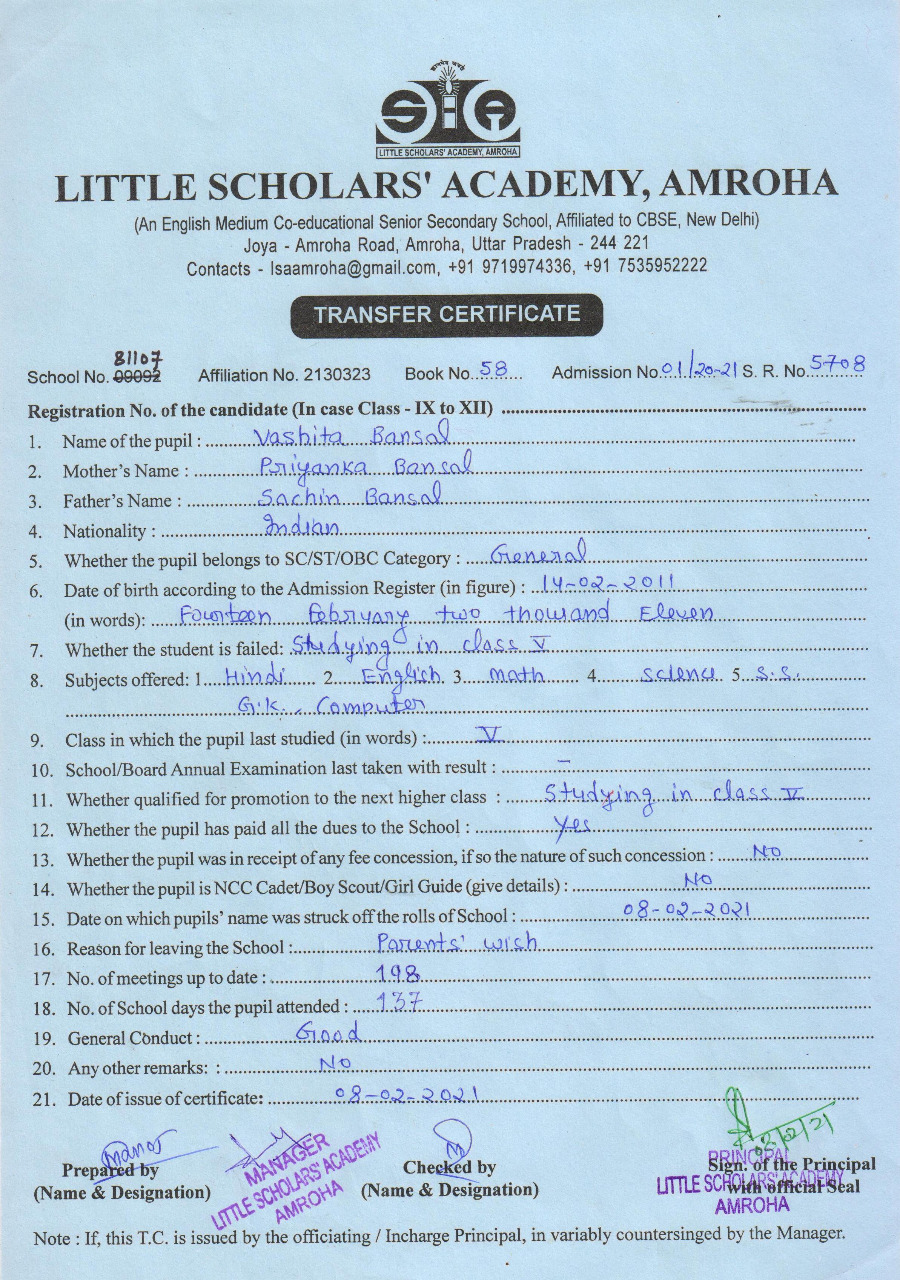 LITTLE SCHOLARS' ACADEMY, AMROHA
LITTLE SCHOLARS' ACADEMY, AMROHA
(An English Medium Co-educational Senior Secondary School, Affiliated to CBSE, New Delhi)
Joya - Amroha Road, Amroha, Uttar Pradesh - 244 221
Contacts - lsaamroha@gmail.com, +91 9719974336, +91 7535952222
TRANSFER CERTIFICATE
81107
School No. 09092 Affiliation No. 2130323 Book No. 58 Admission No. 01/20-21 S. R. No. 5708
Registration No. of the candidate (In case Class - IX to XII)
1. Name of the pupil : Vashita Bansal
2. Mother's Name : Priyanka Bansal
3. Father's Name : Sachin Bansal
4. Nationality : Indian
5. Whether the pupil belongs to SC/ST/OBC Category : General
6. Date of birth according to the Admission Register (in figure) : 14-02-2011
(in words): Fourteen February two thousand Eleven
7. Whether the student is failed: Studying in class V
8. Subjects offered: 1. Hindi 2. English 3. math 4. science 5. S.S.
G.K. Computer
9. Class in which the pupil last studied (in words) : V
10. School/Board Annual Examination last taken with result : –
11. Whether qualified for promotion to the next higher class : Studying in class V
12. Whether the pupil has paid all the dues to the School : Yes
13. Whether the pupil was in receipt of any fee concession, if so the nature of such concession : No
14. Whether the pupil is NCC Cadet/Boy Scout/Girl Guide (give details) : No
15. Date on which pupils' name was struck off the rolls of School : 08-02-2021
16. Reason for leaving the School : Parents' wish
17. No. of meetings up to date : 198
18. No. of School days the pupil attended : 137
19. General Conduct : Good
20. Any other remarks: : No
21. Date of issue of certificate: 08-02-2021
Manoj
08/2/21
Prepared by
(Name & Designation)
MANAGER
LITTLE SCHOLARS' ACADEMY
AMROHA
Checked by
(Name & Designation)
PRINCIPAL
LITTLE SCHOLARS' ACADEMY
AMROHA
Sign. of the Principal
with official Seal
Note : If, this T.C. is issued by the officiating / Incharge Principal, in variably countersinged by the Manager.